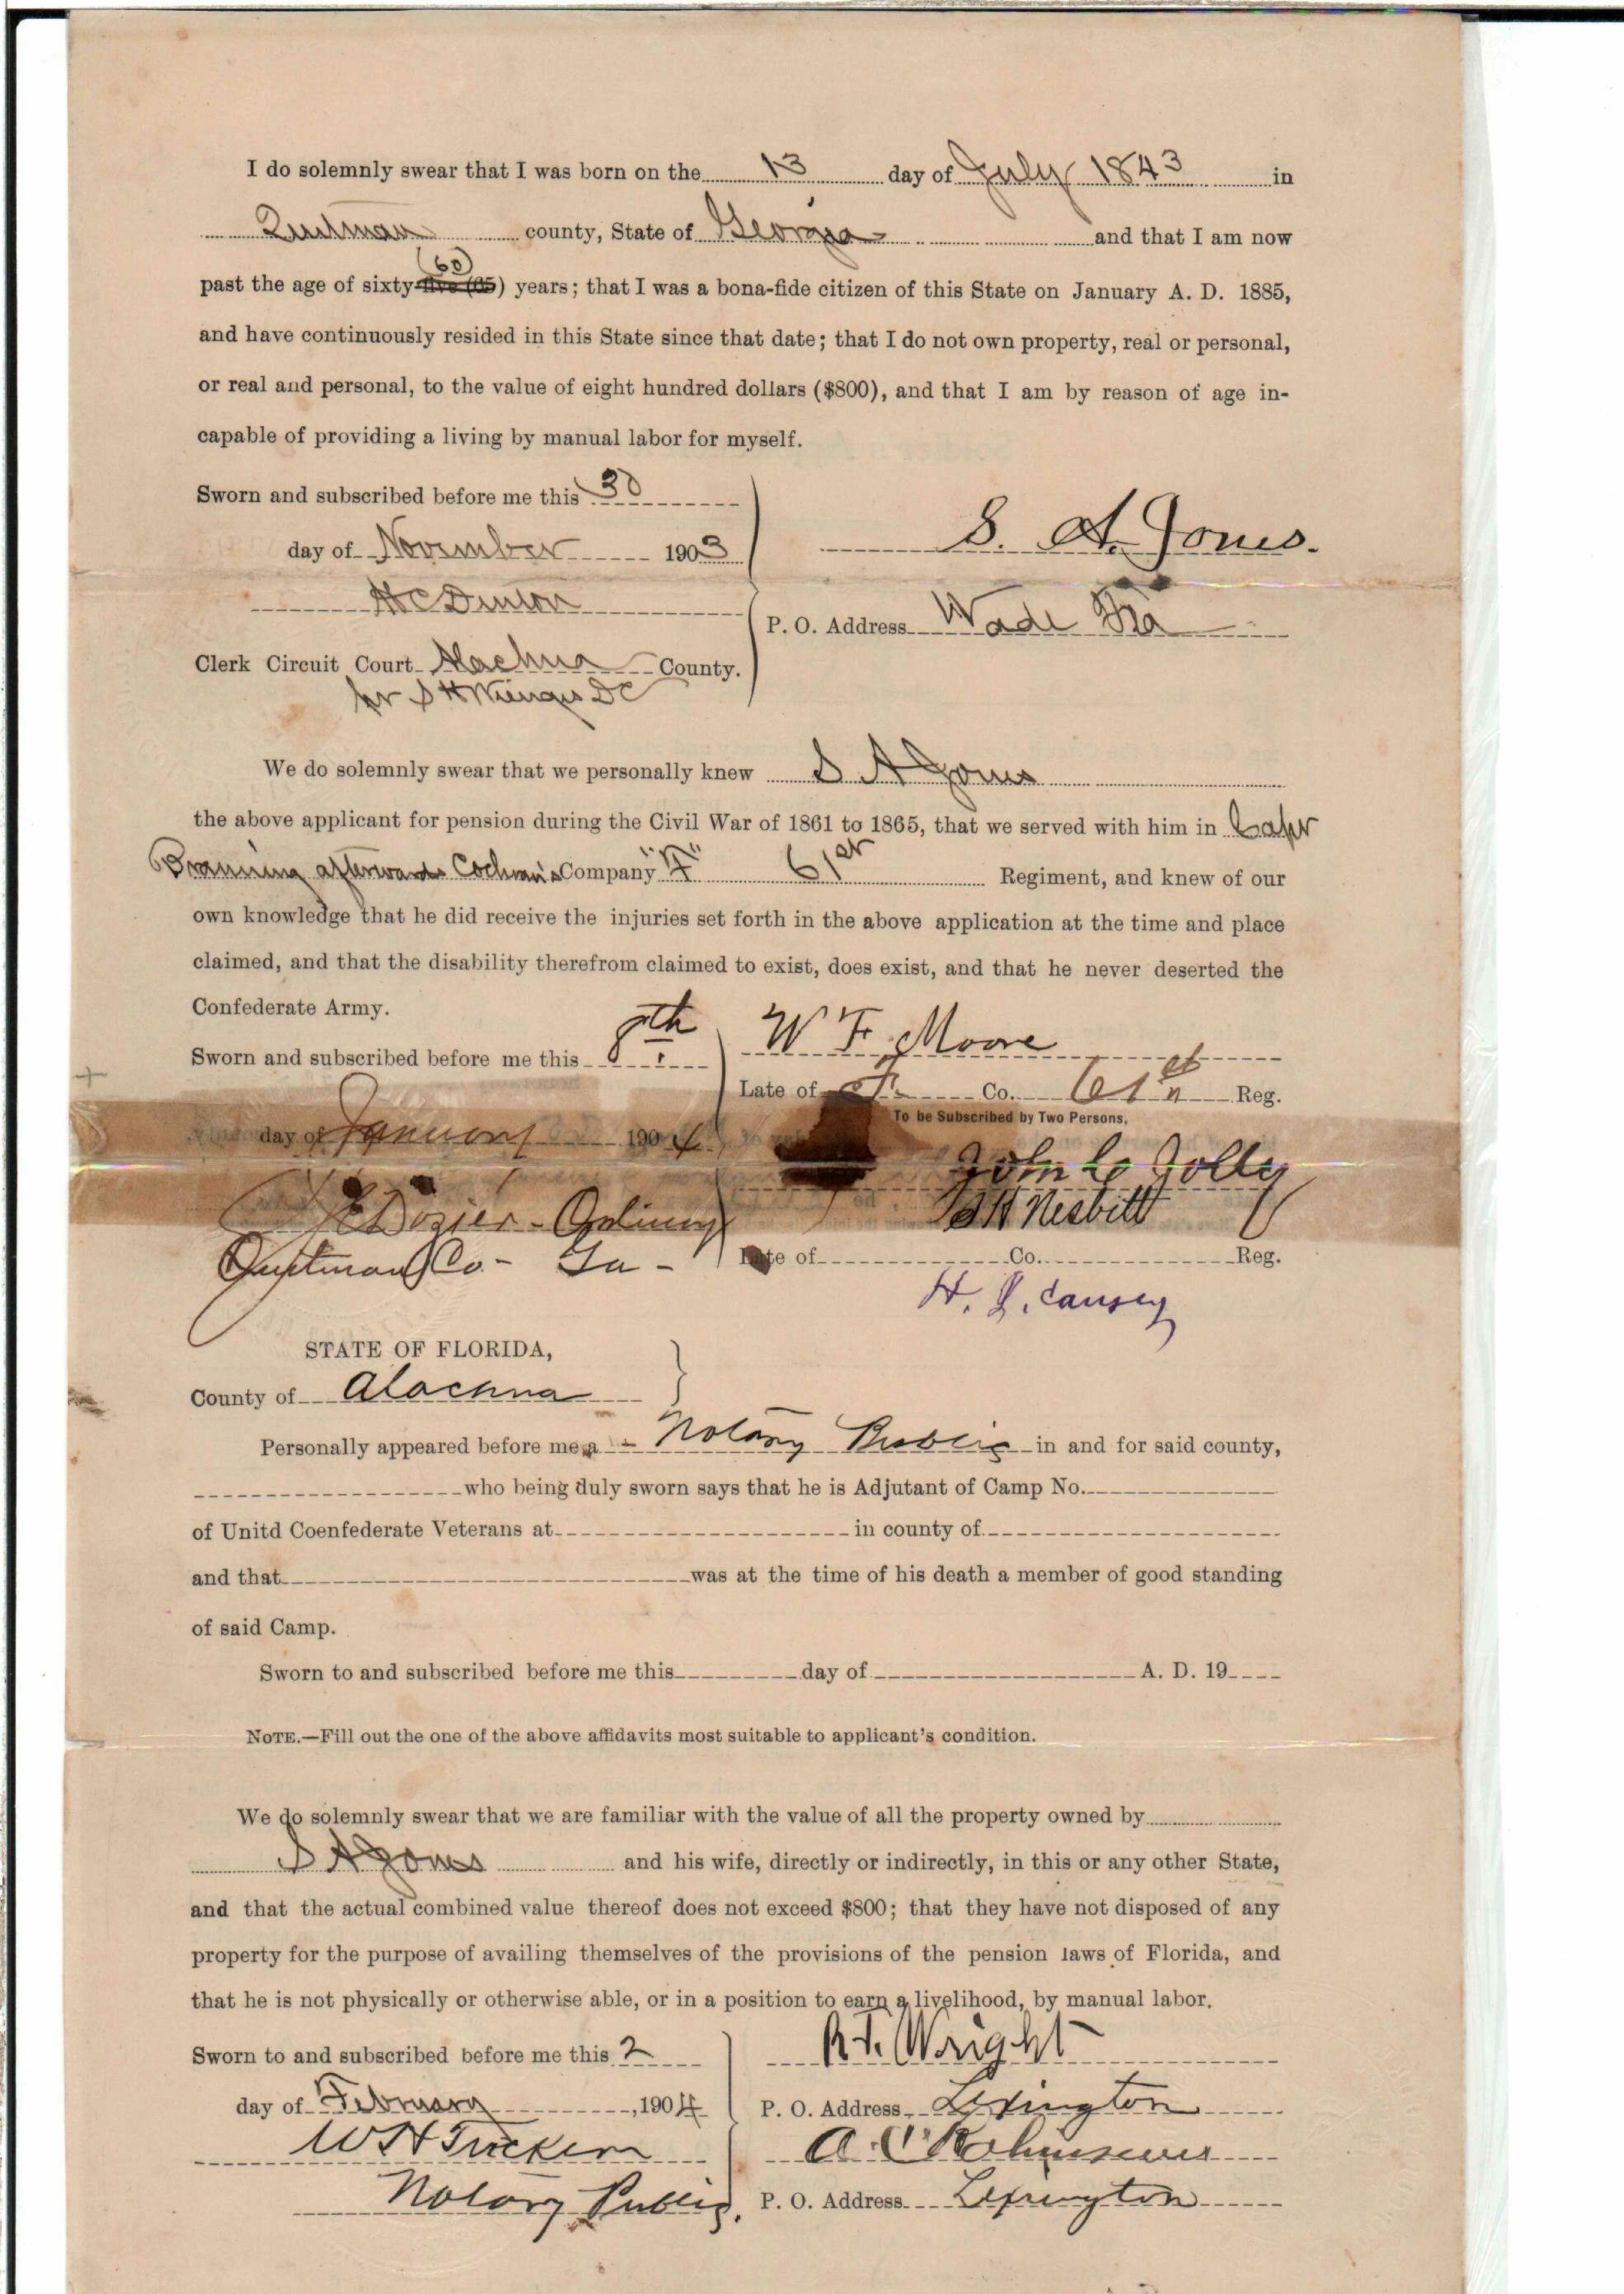 I do solemnly swear that I was born on the 13 day of July 1843 in
Quitman county, State of Georgia and that I am now
(60)
past the age of sixty-five (65) years; that I was a bona-fide citizen of this State on January A. D. 1885,
and have continuously resided in this State since that date; that I do not own property, real or personal,
or real and personal, to the value of eight hundred dollars ($800), and that I am by reason of age in-
capable of providing a living by manual labor for myself.
Sworn and subscribed before me this 30
day of November 1903
S. A. Jones.
H C Denton
P. O. Address Wade Fla
Clerk Circuit Court Alachua County.
pr S H Wienges DC
We do solemnly swear that we personally knew S A Jones
the above applicant for pension during the Civil War of 1861 to 1865, that we served with him in Capt
Branning afterwards Cochran's Company "F" 61st Regiment, and knew of our
own knowledge that he did receive the injuries set forth in the above application at the time and place
claimed, and that the disability therefrom claimed to exist, does exist, and that he never deserted the
Confederate Army.
Sworn and subscribed before me this 8th
W F Moore
Late of F Co. 61st Reg.
To be Subscribed by Two Persons.
day of January 1904
John C Jolly
J E Dozier - Ordinary
B H Nesbitt
Quitman Co - Ga -
Late of Co. Reg.
H. L. Causey
STATE OF FLORIDA,
County of Alachua
Personally appeared before me a - Notary Public in and for said county,
who being duly sworn says that he is Adjutant of Camp No.
of Unitd Coenfederate Veterans at in county of
and that was at the time of his death a member of good standing
of said Camp.
Sworn to and subscribed before me this day of A. D. 19
NOTE.—Fill out the one of the above affidavits most suitable to applicant's condition.
We do solemnly swear that we are familiar with the value of all the property owned by
S A Jones and his wife, directly or indirectly, in this or any other State,
and that the actual combined value thereof does not exceed $800; that they have not disposed of any
property for the purpose of availing themselves of the provisions of the pension laws of Florida, and
that he is not physically or otherwise able, or in a position to earn a livelihood, by manual labor.
Sworn to and subscribed before me this 2
R. T. Wright
day of February, 1904
P. O. Address Lexington
W H Tucker
A. C.
Notary Public.
P. O. Address Lexington